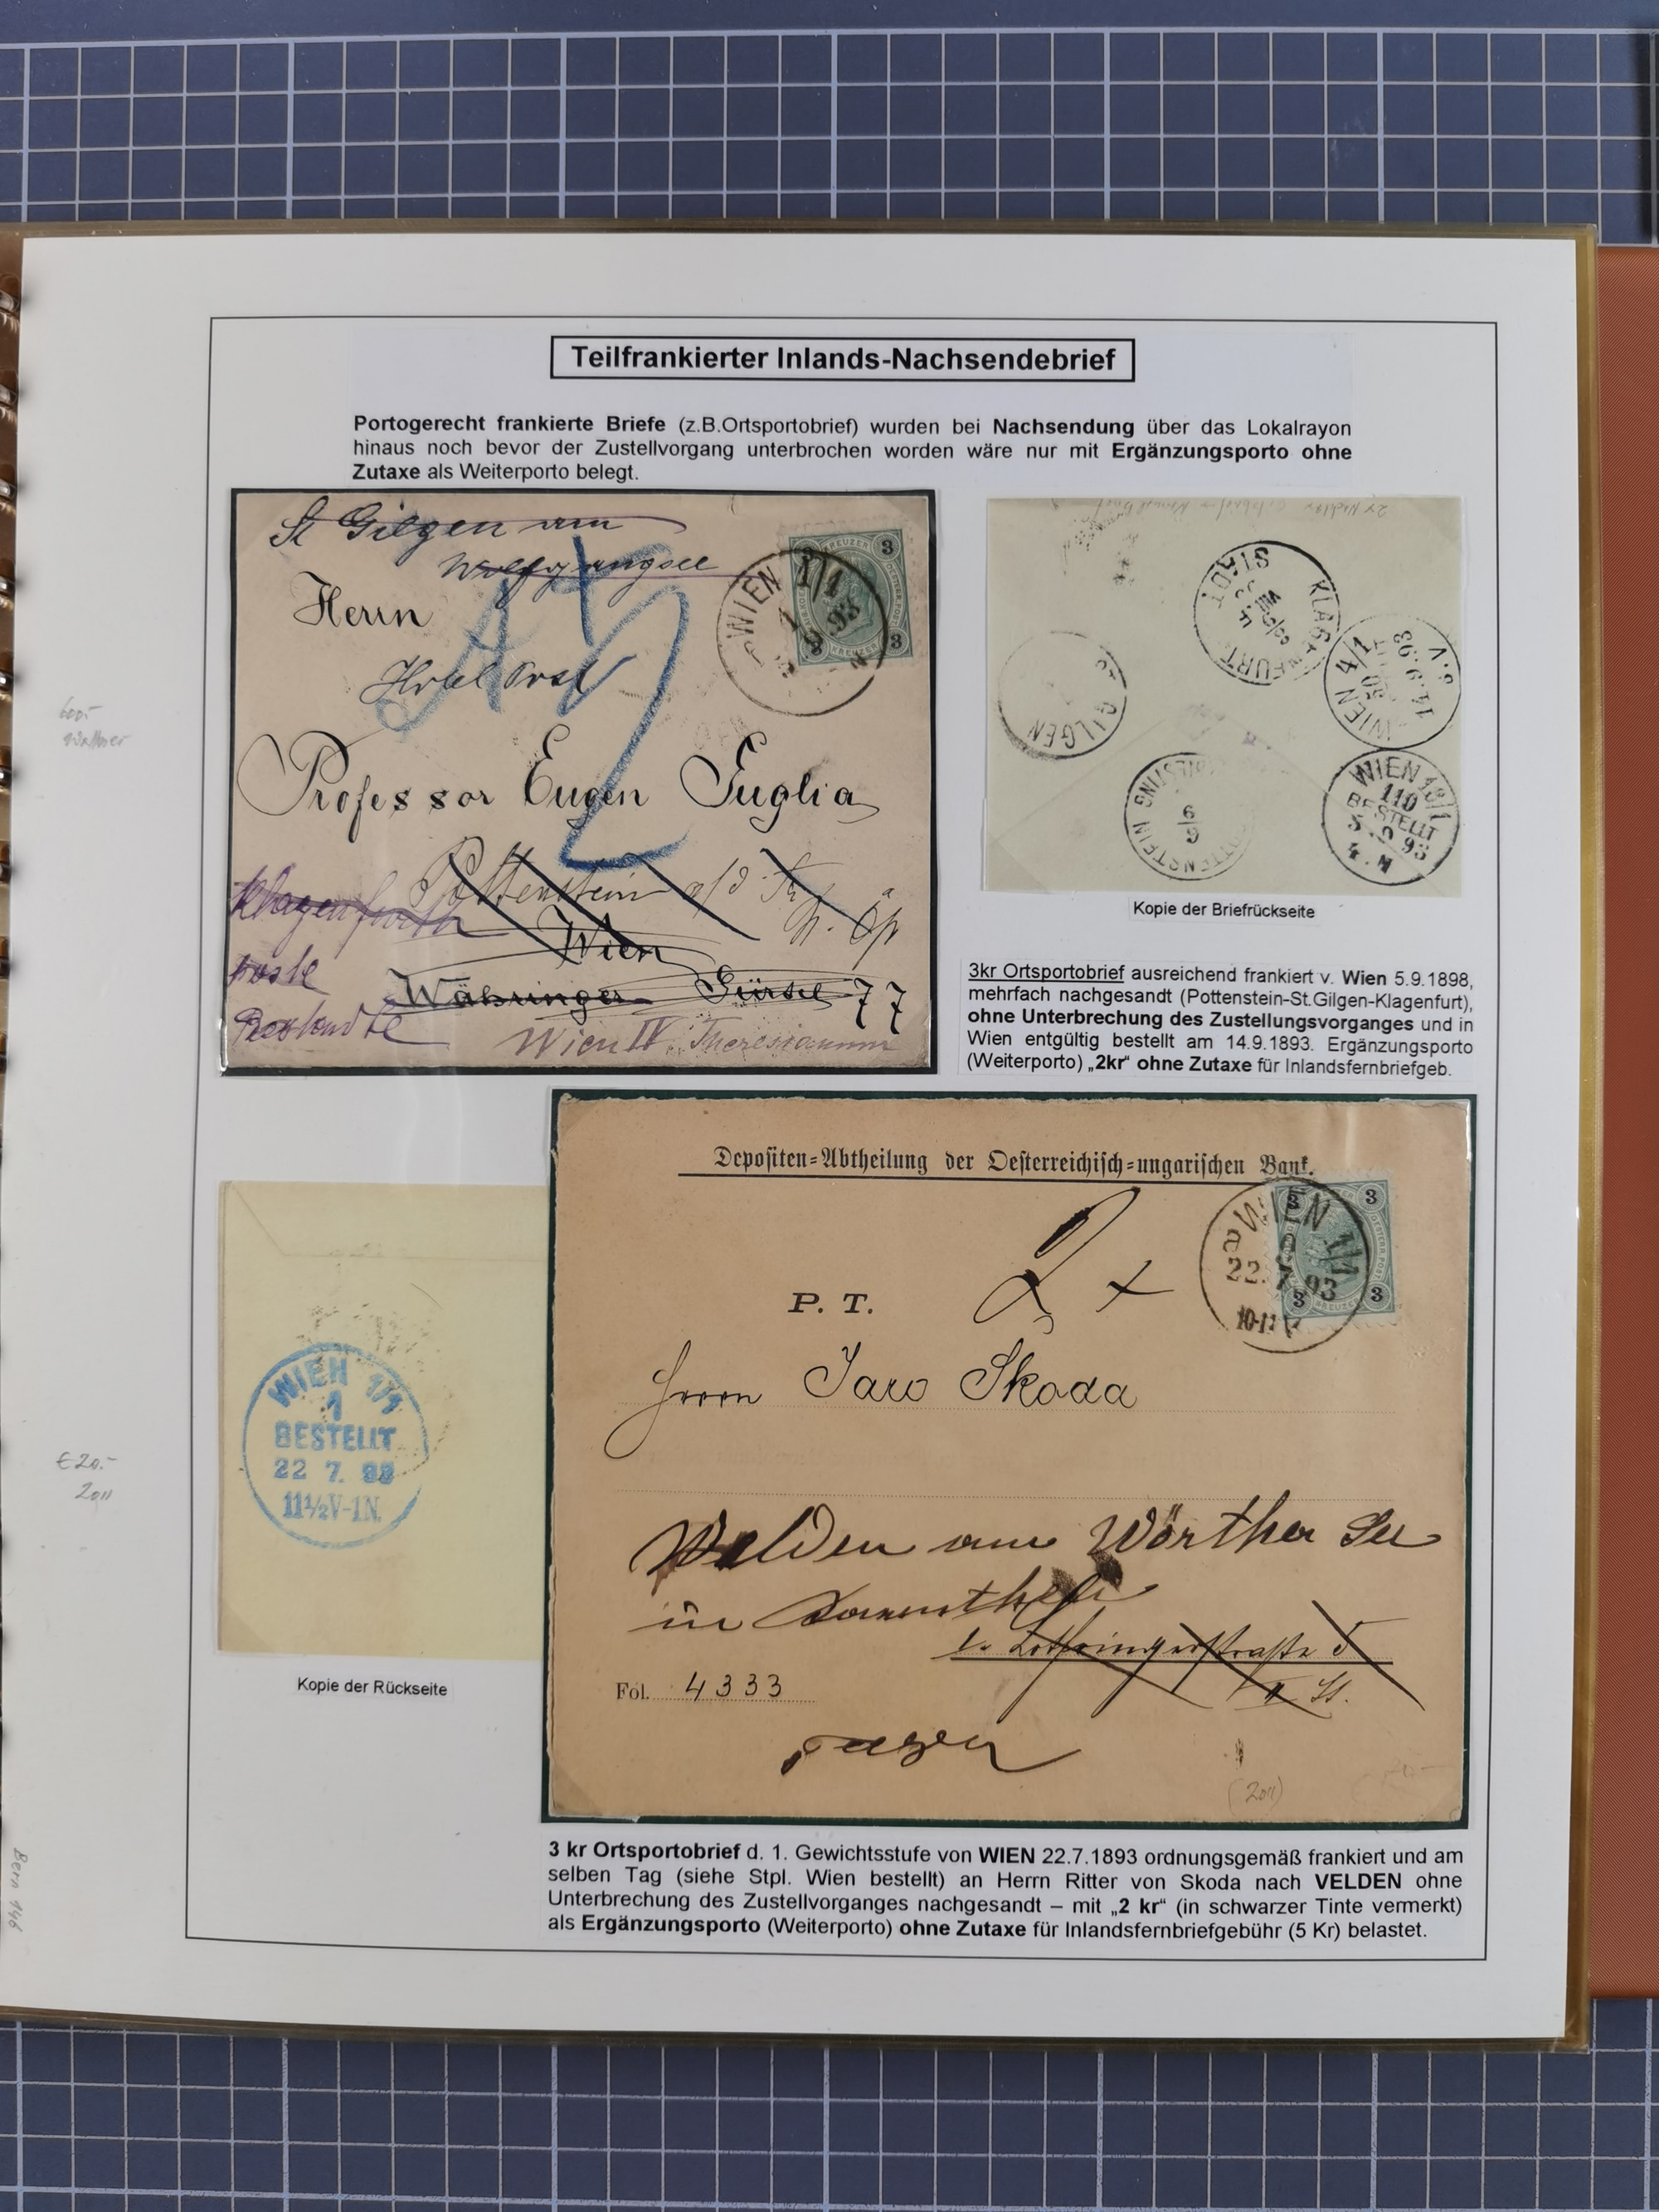 Teilfrankierter Inlands-Nachsendebrief
Portogerecht frankierte Briefe (z.B.Ortsportobrief) wurden bei Nachsendung über das Lokalrayon
hinaus noch bevor der Zustellvorgang unterbrochen worden wäre nur mit Ergänzungsporto ohne
Zutaxe als Weiterporto belegt.
St Gilgen am
Wolfgangsee
Herrn
Hotel Post
Professor Eugen Guglia
Pottenstein a/d
Klagenfurth
Wien
poste
Währinger Gürtel 77
Restante
Wien IV. Theresianum
2
WIEN 1/1
93
3 3
3 3
KREUZER
KLAGENFURT STADT
WIEN 4/1
14.9.93
8.V
ST GILGEN
POTTENSTEIN
6/9
WIEN 18/1
110
BESTELLT
5.9.93
4.N
Kopie der Briefrückseite
3kr Ortsportobrief ausreichend frankiert v. Wien 5.9.1898,
mehrfach nachgesandt (Pottenstein-St.Gilgen-Klagenfurt),
ohne Unterbrechung des Zustellungsvorganges und in
Wien entgültig bestellt am 14.9.1893. Ergänzungsporto
(Weiterporto) „2kr" ohne Zutaxe für Inlandsfernbriefgeb.
Depositen=Abtheilung der Oesterreichisch=ungarischen Bank.
2 x
WIEN 1/1
22. 7. 93
10-11 V
3 3
3 3
KREUZER
P. T.
Herrn Jaro Skoda
Velden am Wörther See
in Kaernthen
Lothringerstraße 5
II St.
Fol. 4333
(2011)
WIEN 1/1
1
BESTELLT
22 7. 93
11½V-1N.
Kopie der Rückseite
3 kr Ortsportobrief d. 1. Gewichtsstufe von WIEN 22.7.1893 ordnungsgemäß frankiert und am
selben Tag (siehe Stpl. Wien bestellt) an Herrn Ritter von Skoda nach VELDEN ohne
Unterbrechung des Zustellvorganges nachgesandt – mit „2 kr" (in schwarzer Tinte vermerkt)
als Ergänzungsporto (Weiterporto) ohne Zutaxe für Inlandsfernbriefgebühr (5 Kr) belastet.
600.-
Wallner
€20.-
2011
Bern 146